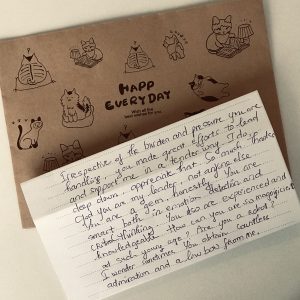 HAPP
EVERYDAY
Irrespective of the burden and pressure you are
handling, you made great efforts to lend
and support me in a tender way. I do
deep down, appreciate that so much. Thanked
God you are my leader not anyone else.
You are a gem, honestly! You are
smart both in emotion detection and
critical thinking. You also are experienced and
knowledgeable. How can you are so magnificent
at such young age? Are you a sybil?
I wonder sometimes. You obtain countless
admiration and a low bow from me.